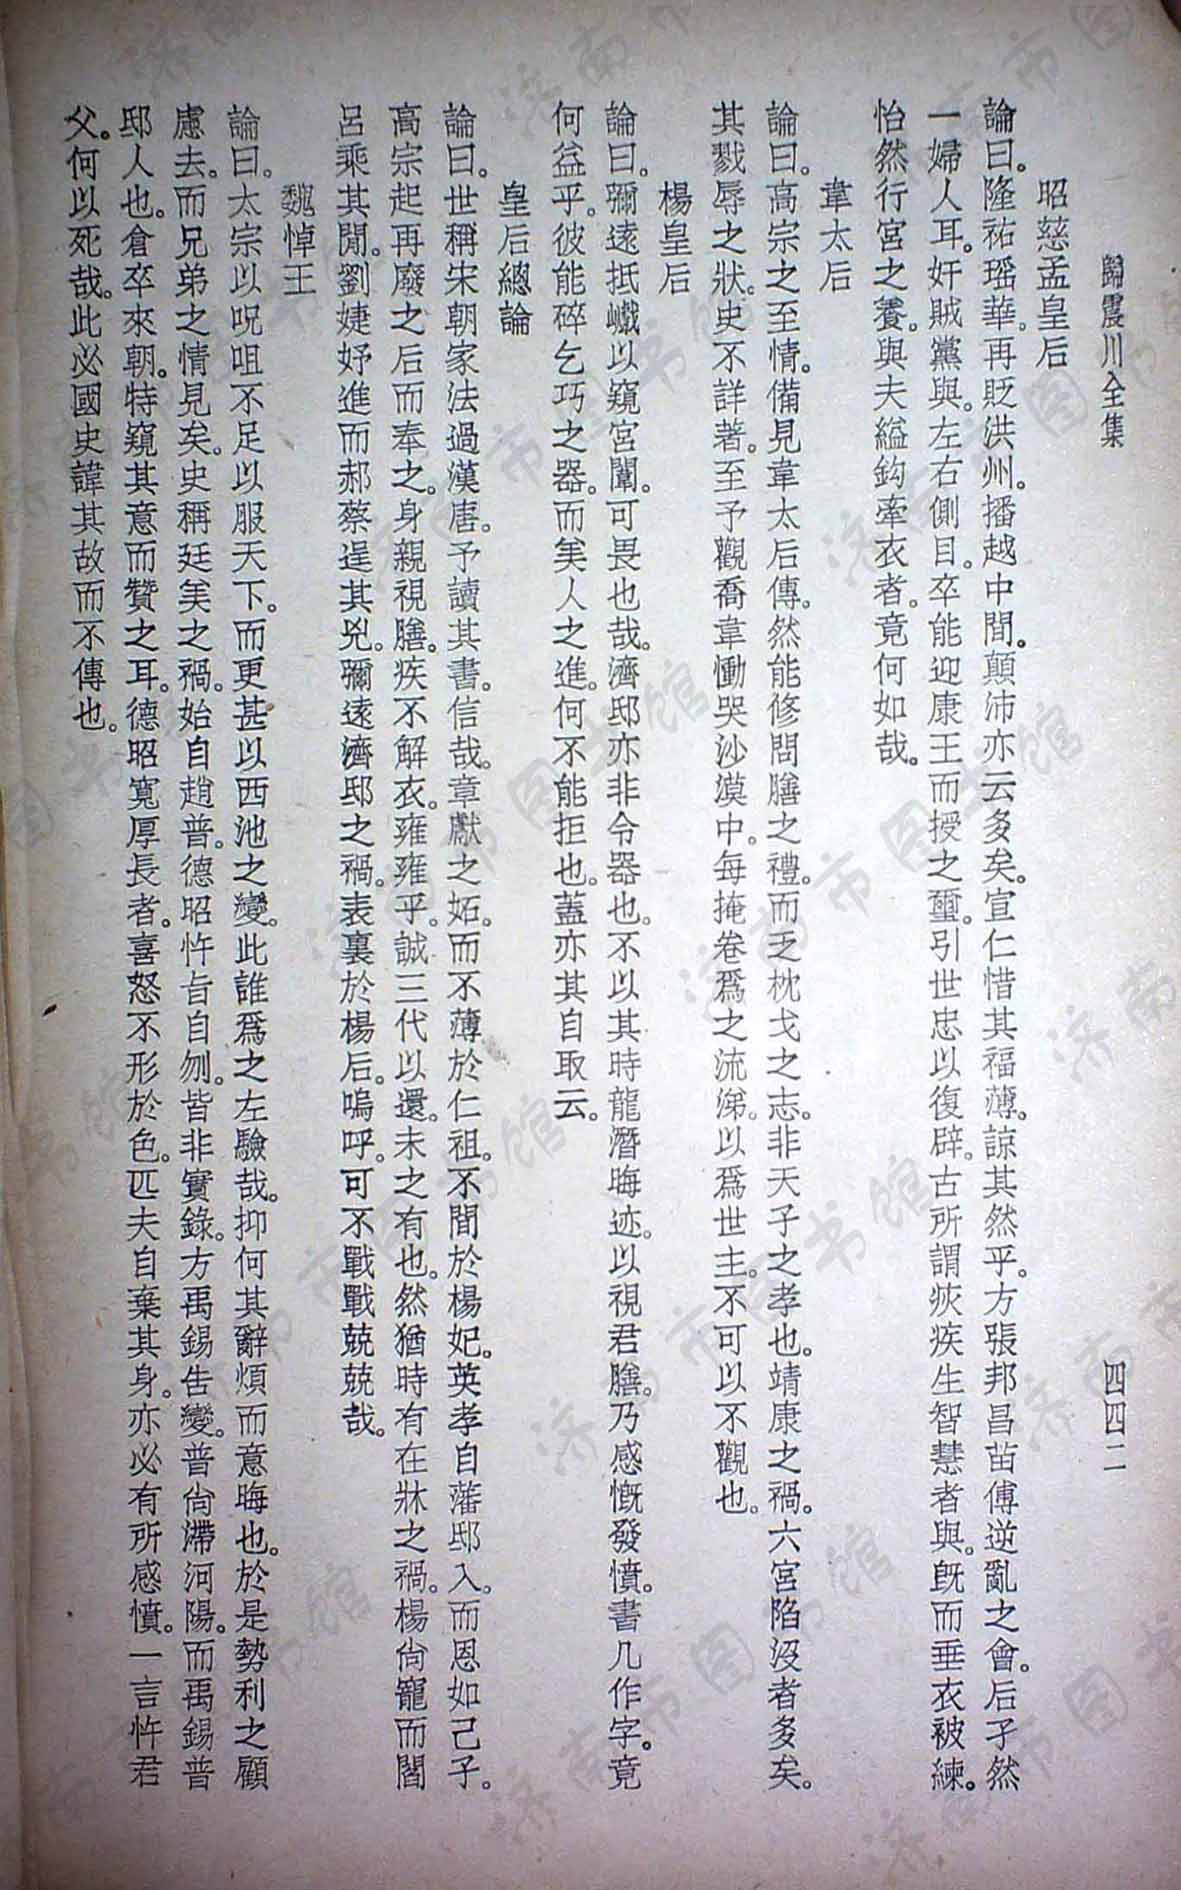 歸震川全集
四四二
昭慈孟皇后
論曰。隆祐瑶華。再貶洪州。播越中間。顛沛亦云多矣。宣仁惜其福薄。諒其然乎。方張邦昌苗傅逆亂之會。后孑然
一婦人耳。奸賊黨與。左右側目。卒能迎康王而授之璽。引世忠以復辟。古所謂疢疾生智慧者與。既而垂衣被練。
怡然行宮之養。與夫縊鈎牽衣者。竟何如哉。
韋太后
論曰。高宗之至情。備見韋太后傳。然能修問膳之禮。而乏枕戈之志。非天子之孝也。靖康之禍。六宮陷沒者多矣。
其戮辱之狀。史不詳著。至予觀喬韋慟哭沙漠中。每掩卷爲之流涕。以爲世主。不可以不觀也。
楊皇后
論曰。彌遠抵巇以窺宮闈。可畏也哉。濟邸亦非令器也。不以其時龍潛晦迹。以視君膳。乃感慨發憤。書几作字。竟
何益乎。彼能碎乞巧之器。而美人之進。何不能拒也。蓋亦其自取云。
皇后總論
論曰。世稱宋朝家法過漢唐。予讀其書。信哉。章獻之妬。而不薄於仁祖。不間於楊妃。英孝自藩邸入。而恩如己子。
高宗起再廢之后而奉之。身親視膳。疾不解衣。雍雍乎。誠三代以還。未之有也。然猶時有在牀之禍。楊尙寵而閻
呂乘其閒。劉婕妤進而郝蔡逞其兇。彌遠濟邸之禍。表裏於楊后。嗚呼。可不戰戰兢兢哉。
魏悼王
論曰。太宗以呪咀不足以服天下。而更甚以西池之變。此誰爲之左驗哉。抑何其辭煩而意晦也。於是勢利之顧
慮去。而兄弟之情見矣。史稱廷美之禍。始自趙普。德昭忤旨自刎。皆非實錄。方禹錫告變。普尙滯河陽。而禹錫普
邸人也。倉卒來朝。特窺其意而贊之耳。德昭寬厚長者。喜怒不形於色。匹夫自棄其身。亦必有所感憤。一言忤君
父。何以死哉。此必國史諱其故而不傳也。